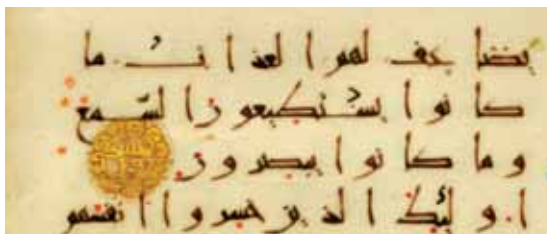 يضاعف لهم العذاب ما
كانوا يستطيعون السمع
وما كانوا يبصرون
اولئك الذين خسروا انفسهم